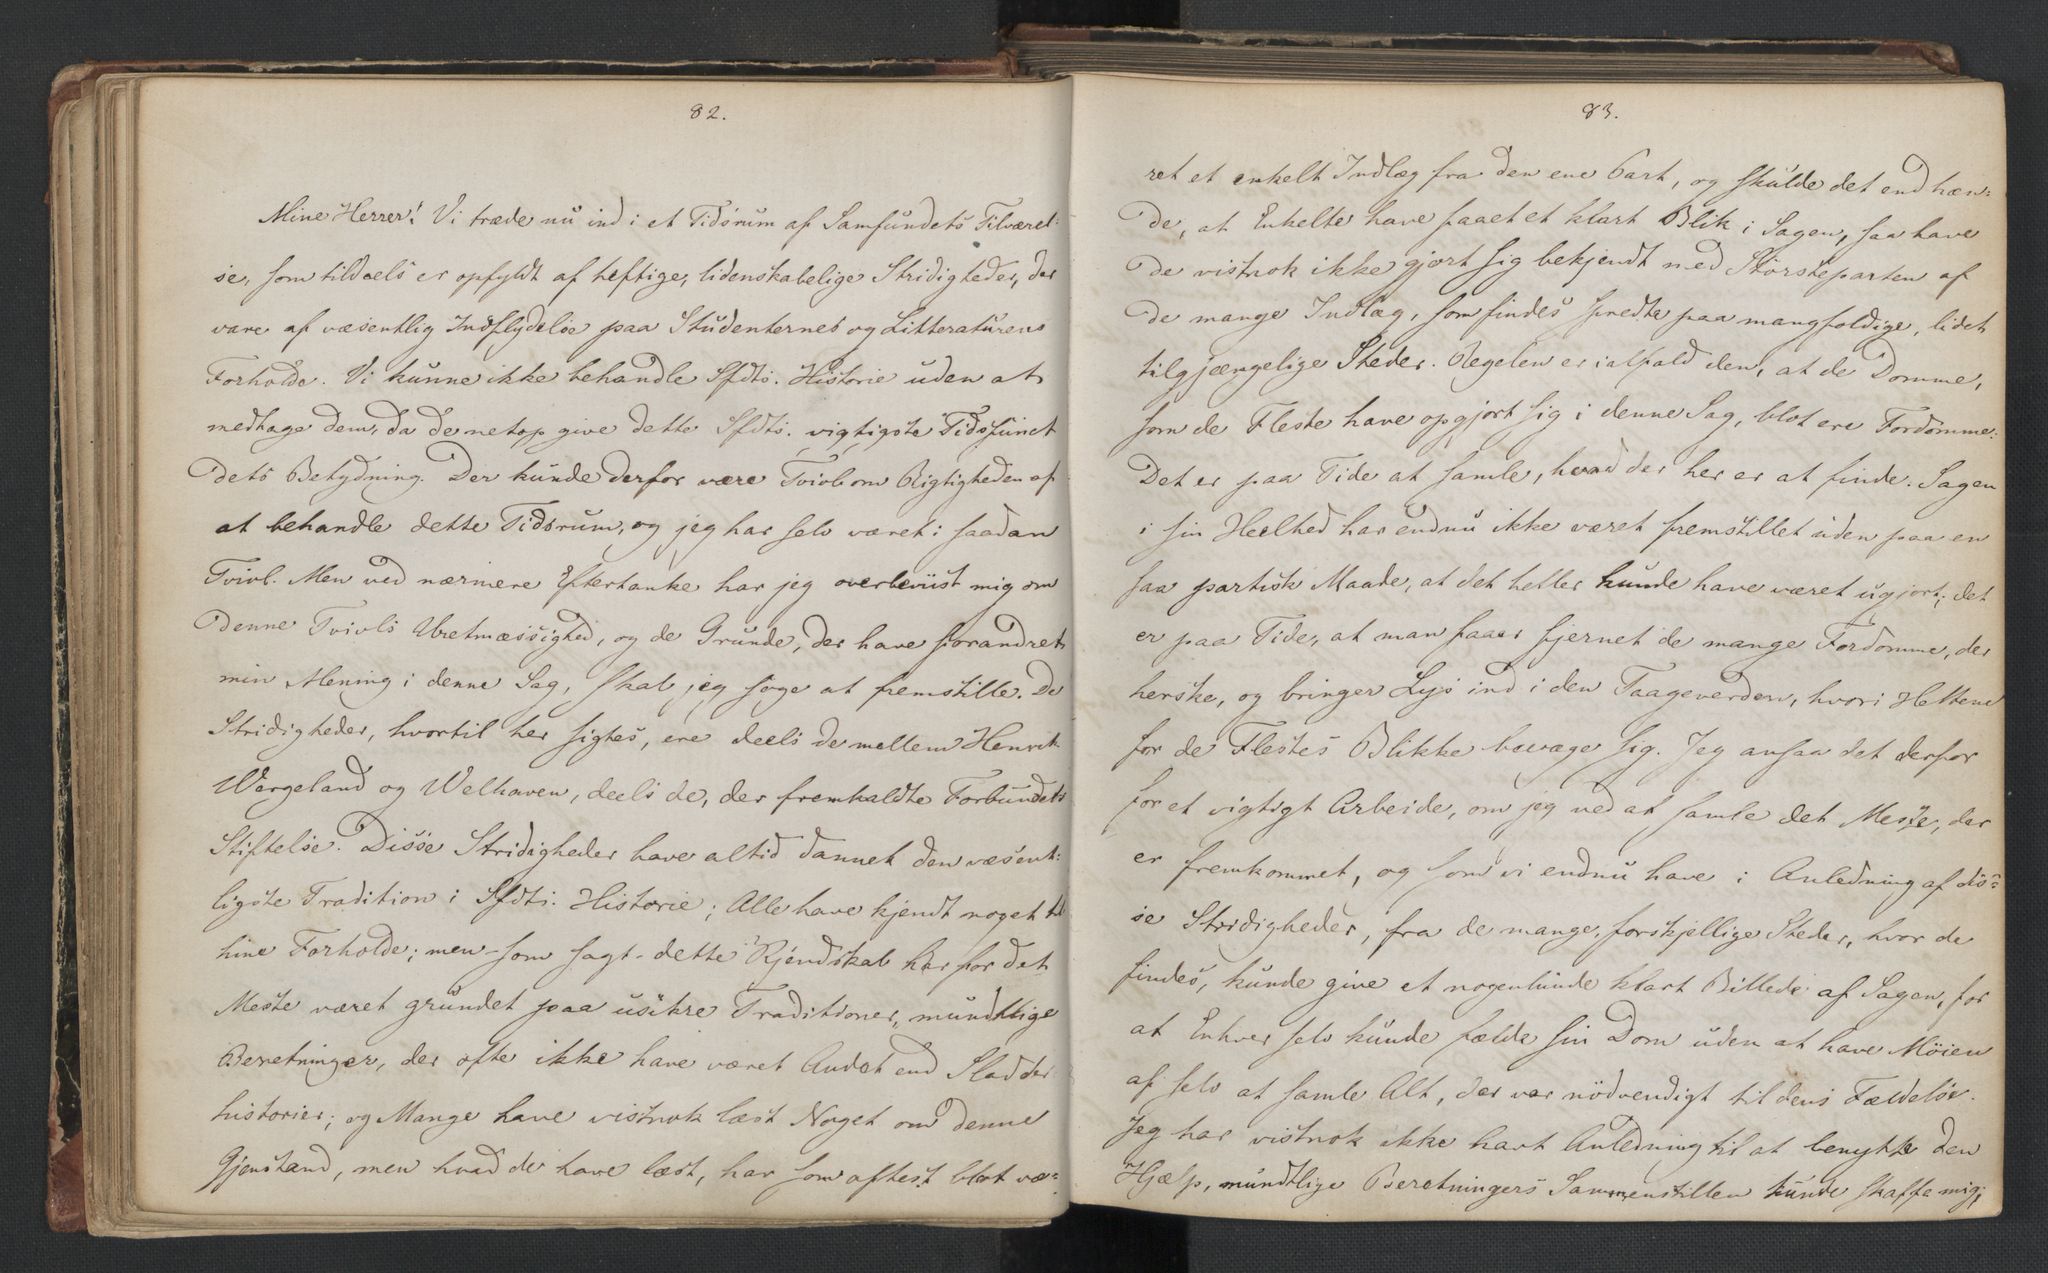 82.
Mine Herrer! Vi træde nu ind i et Tidsrum af Samfundets Tilværel-
se, som tildeels er opfyldt af heftige, lidenskabelige Stridigheder, der
vare af væsentlig Indflydelse paa Studenternes og Litteraturens
Forholde. Vi kunne ikke behandle Sfdts. Historie uden at
medtage dem, da de netop give dette Sfdts. vigtigste Tidspunct
dets Betydning. Der kunde derfor være Tvivl om Rigtigheden af
at behandle dette Tidsrum, og jeg har selv været i saadan
Tvivl. Men ved nærmere Eftertanke har jeg overbeviist mig om
denne Tvivls Uretmæssighed, og de Grunde, der have forandret
min Mening i denne Sag, skal jeg søge at fremstille. De
Stridigheder, hvortil her sigtes, ere deels de mellem Henrik
Wergeland og Welhaven, deels de, der fremkaldte Forbundets
Stiftelse. Disse Stridigheder have altid dannet den væsent-
ligste Tradition i Sfdts. Historie; Alle have kjendt noget til
hine Forholde; men - som sagt - dette Kjendskab har for det
Meste været grundet paa usikre Traditioner, mundtlige
Beretninger, der ofte ikke have været Andet end Sladder-
historier; og Mange have vistnok læst Noget om denne
Gjenstand, men hvad de have læst, har som oftest blot væ-
83.
ret et enkelt Indlæg fra den ene Part, og skulde det end hæn-
de, at Enkelte have faaet et klart Blik i Sagen, saa have
de vistnok ikke gjort sig bekjendt med Størsteparten af
de mange Indlæg, som findes spredte paa mangfoldige, lidet
tilgjængelige Steder. Regelen er ialfald den, at de Domme,
som de Fleste have opgjort sig i denne Sag, blot ere Fordomme.
Det er paa Tide at samle, hvad der her er at finde. Sagen
i sin Heelhed har endnu ikke været fremstillet uden paa en
saa partisk Maade, at det heller kunde have været ugjort; det
er paa Tide, at man faaer fjernet de mange Fordomme, der
herske, og bringer Lys ind i den Taageverden, hvori Heltene
for de Flestes Blikke bevæge sig. Jeg ansaa det derfor
for et vigtigt Arbeide, om jeg ved at samle det Meste, der
er fremkommet, og som vi endnu have i Anledning af dis-
se Stridigheder, fra de mange, forskjellige Steder, hvor de
findes, kunde give et nogenlunde klart Billede af Sagen, for
at Enhver selv kunde fælde sin Dom uden at have Møien
af selv at samle Alt, der var nødvendigt til dens Fældelse.
Jeg har vistnok ikke havt Anledning til at benytte den
Hjælp, mundtlige Beretningers Sammenstillen kunde skaffe mig;